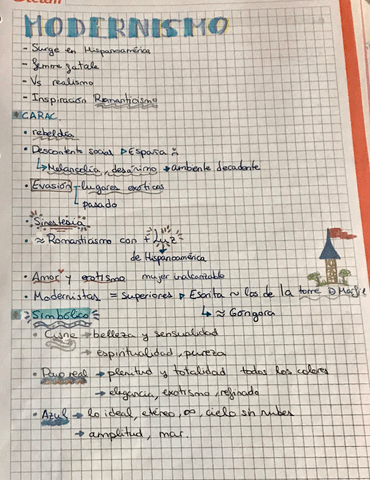 MODERNISMO
- Surge en Hispanoamérica
- femme fatale
- Vs realismo
- Inspiración Romanticismo
CARAC.
• rebeldía
• Descontento social ▷ España
↳ Melancolía, desánimo → ambiente decadente
• Evasión - lugares exóticos
↳ pasado
• Sinestesia
• ≈ Romanticismo con + Luz
↳ de Hispanoamérica
• Amor y erotismo mujer inalcanzable
• Modernistas = Superiores ▷ Escrita ~ los de la torre
↳ ≈ Góngora
Simbólico
• Cisne → belleza y sensualidad
→ espiritualidad, pureza
• Pavo real → plenitud y totalidad todos los colores
→ elegancia, exotismo, refinado
• Azul → lo ideal, etéreo, ∞, cielo sin nubes
→ amplitud, mar.